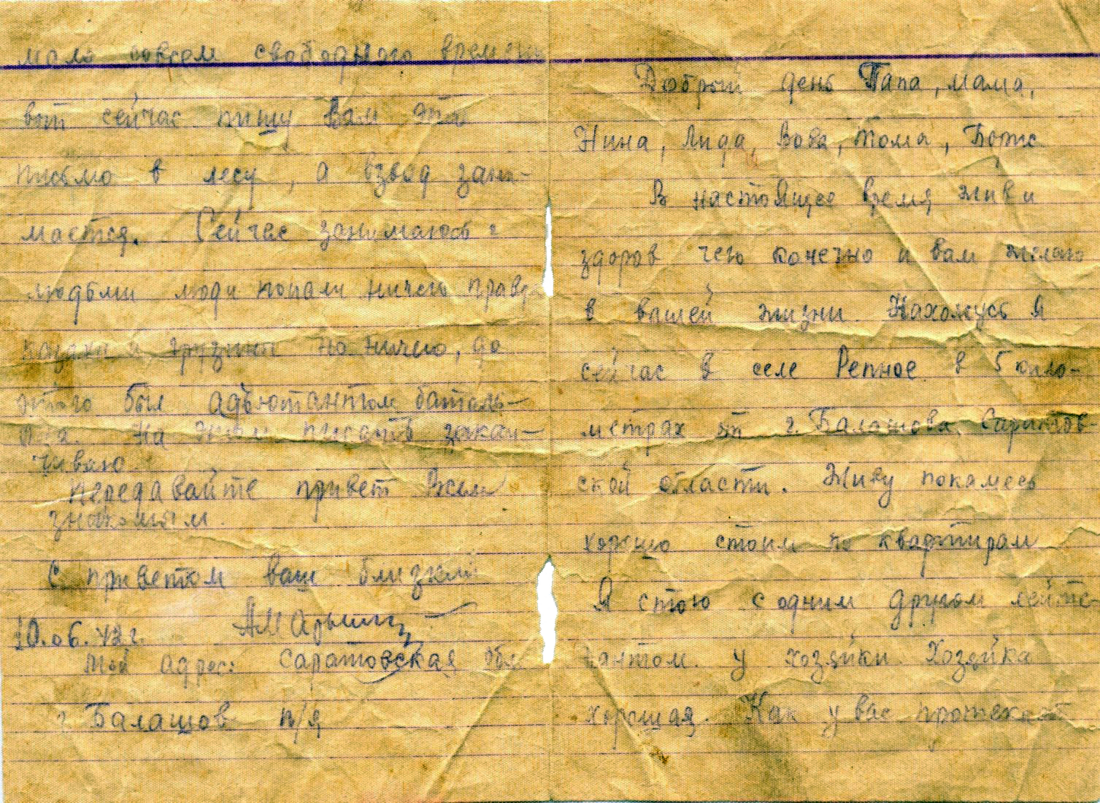 Добрый день Папа, мама,
Нина, Лида, Вова, Тома,
В настоящее время жив и
здоров чего конечно и вам желаю
в вашей жизни. Нахожусь я
сейчас в селе Репное в 5 кило-
метрах от г. Балашова Саратов-
ской области. Живу покамесь
хорошо стоим по квартирам
Я стою с одним другом лейте-
нантом. у хозяйки. Хозяйка
хорошая. Как у вас протекает
мало совсем свободного времени
вот сейчас пишу вам это
письмо в лесу, а взвод зани-
мается. Сейчас занимаюсь с
людьми люди попали ничего правда
казахи и грузины но ничего, до
этого был адъютантом баталь-
она. На этом писать закан-
чиваю.
Передавайте привет Всем
знакомым.
С приветом ваш близкий
10.06.42г.
Мой адрес: Саратовская обл
г. Балашов п/я